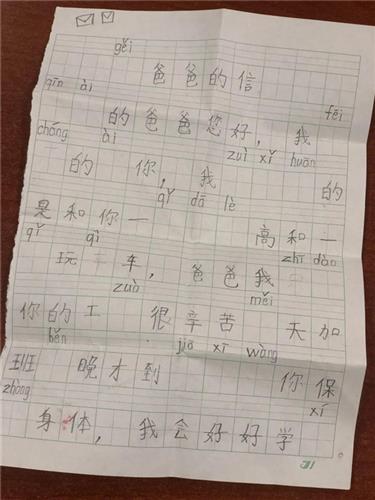 gěi 爸爸的信
qīn ài 的爸爸您好，我 fēi
cháng ài 的你，我 zuì xǐ huān 的
是和你一 qǐ dā lè 高和一
qǐ 玩 qì 车，爸爸我 zhī dào
你的工 zuò 很辛苦 měi 天加
班 hěn 晚才到 jiā xī wàng 你保
zhòng 身体，我会好好学 xí